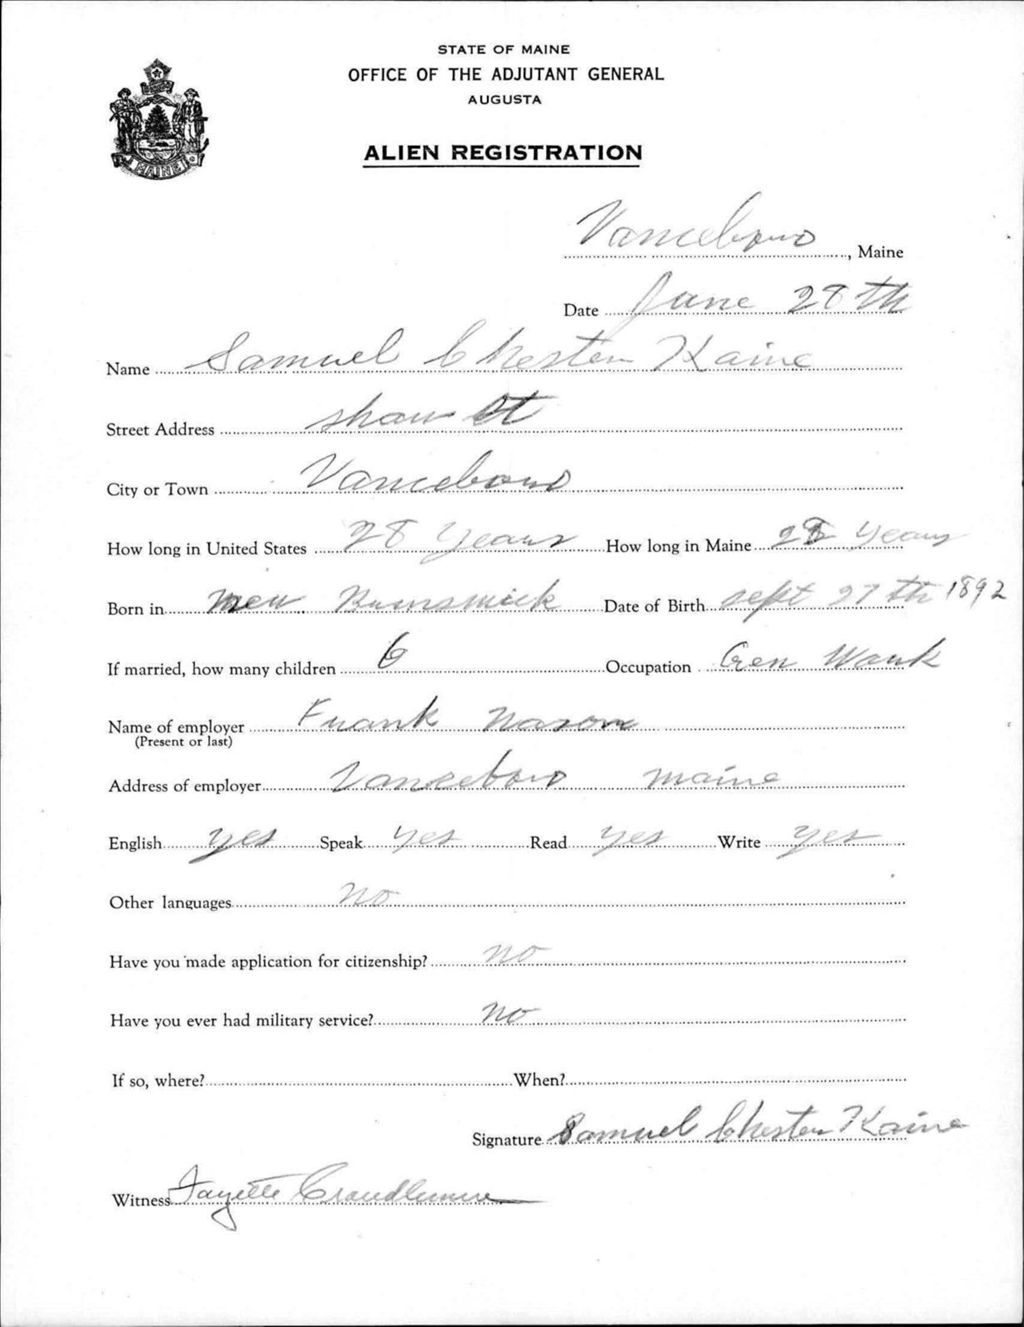 STATE OF MAINE
OFFICE OF THE ADJUTANT GENERAL
AUGUSTA
ALIEN REGISTRATION
MAINE
Vanceboro, Maine
Date June 28th
Name Samuel Chester Kaine
Street Address Shaw St
City or Town Vanceboro
How long in United States 28 Years How long in Maine 28 Years
Born in New Brunswick Date of Birth Sept 27th 1892
If married, how many children 6 Occupation Gen Work
Name of employer Frank Nason
(Present or last)
Address of employer Vanceboro Maine
English Yes Speak Yes Read Yes Write Yes
Other languages No
Have you made application for citizenship? No
Have you ever had military service? No
If so, where? When?
Signature Samuel Chester Kaine
Witness Fayette Crandlemire